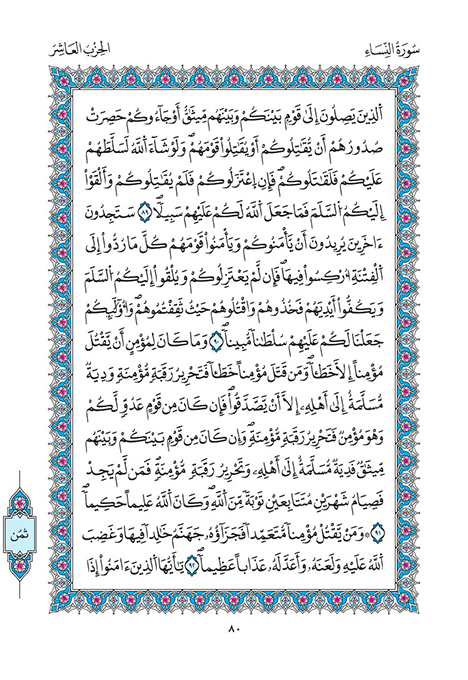 سُورَةُ النِّسَاءِ
الحِزْبُ العَاشِرُ
اَلذِينَ يَصِلُونَ إِلَىٰ قَوْمٍۢ بَيْنَكُمْ وَبَيْنَهُم مِّيثَٰقٌ أَوْ جَآءُوكُمْ حَصِرَتْ
صُدُورُهُمْ أَنْ يُّقَٰتِلُوكُمْ أَوْ يُقَٰتِلُواْ قَوْمَهُمْ وَلَوْ شَآءَ اَللَّهُ لَسَلَّطَهُمْ
عَلَيْكُمْ فَلَقَٰتَلُوكُمْ فَإِنِ اِعْتَزَلُوكُمْ فَلَمْ يُقَٰتِلُوكُمْ وَأَلْقَوِاْ
اِلَيْكُمُ اُلسَّلَمَ فَمَا جَعَلَ اَللَّهُ لَكُمْ عَلَيْهِمْ سَبِيلًا ٨٩ سَتَجِدُونَ
ءَاخَرِينَ يُرِيدُونَ أَنْ يَّامَنُوكُمْ وَيَامَنُواْ قَوْمَهُمْ كُلَّ مَا رُدُّواْ إِلَى
اَلْفِتْنَةِ أُرْكِسُواْ فِيهَا فَإِن لَّمْ يَعْتَزِلُوكُمْ وَيُلْقُواْ إِلَيْكُمُ اُلسَّلَمَ
وَيَكُفُّواْ أَيْدِيَهُمْ فَخُذُوهُمْ وَاقْتُلُوهُمْ حَيْثُ ثَقِفْتُمُوهُمْ وَأُوْلَٰٓئِكُمْ
جَعَلْنَا لَكُمْ عَلَيْهِمْ سُلْطَٰنًا مُّبِينًا ٩٠ وَمَا كَانَ لِمُؤْمِنٍ أَنْ يَّقْتُلَ
مُؤْمِنًا إِلَّا خَطَـًٔا وَمَن قَتَلَ مُؤْمِنًا خَطَـًٔا فَتَحْرِيرُ رَقَبَةٍ مُّؤْمِنَةٍ وَدِيَةٌ
مُّسَلَّمَةٌ إِلَىٰ أَهْلِهِۦ إِلَّا أَنْ يَّصَّدَّقُواْ فَإِن كَانَ مِن قَوْمٍ عَدُوٍّ لَّكُمْ
وَهُوَ مُؤْمِنٌ فَتَحْرِيرُ رَقَبَةٍ مُّؤْمِنَةٍ وَإِن كَانَ مِن قَوْمٍۢ بَيْنَكُمْ وَبَيْنَهُم
مِّيثَٰقٌ فَدِيَةٌ مُّسَلَّمَةٌ إِلَىٰ أَهْلِهِۦ وَتَحْرِيرُ رَقَبَةٍ مُّؤْمِنَةٍ فَمَن لَّمْ يَجِدْ
فَصِيَامُ شَهْرَيْنِ مُتَتَابِعَيْنِ تَوْبَةً مِّنَ اَللَّهِ وَكَانَ اَللَّهُ عَلِيمًا حَكِيمًا
٩١ ۞ وَمَنْ يَّقْتُلْ مُؤْمِنًا مُّتَعَمِّدًا فَجَزَآؤُهُۥ جَهَنَّمُ خَٰلِدًا فِيهَا وَغَضِبَ
اَللَّهُ عَلَيْهِ وَلَعَنَهُۥ وَأَعَدَّ لَهُۥ عَذَابًا عَظِيمًا ٩٢ يَٰٓأَيُّهَا اَلذِينَ ءَامَنُواْ إِذَا
ثمن
٨٠